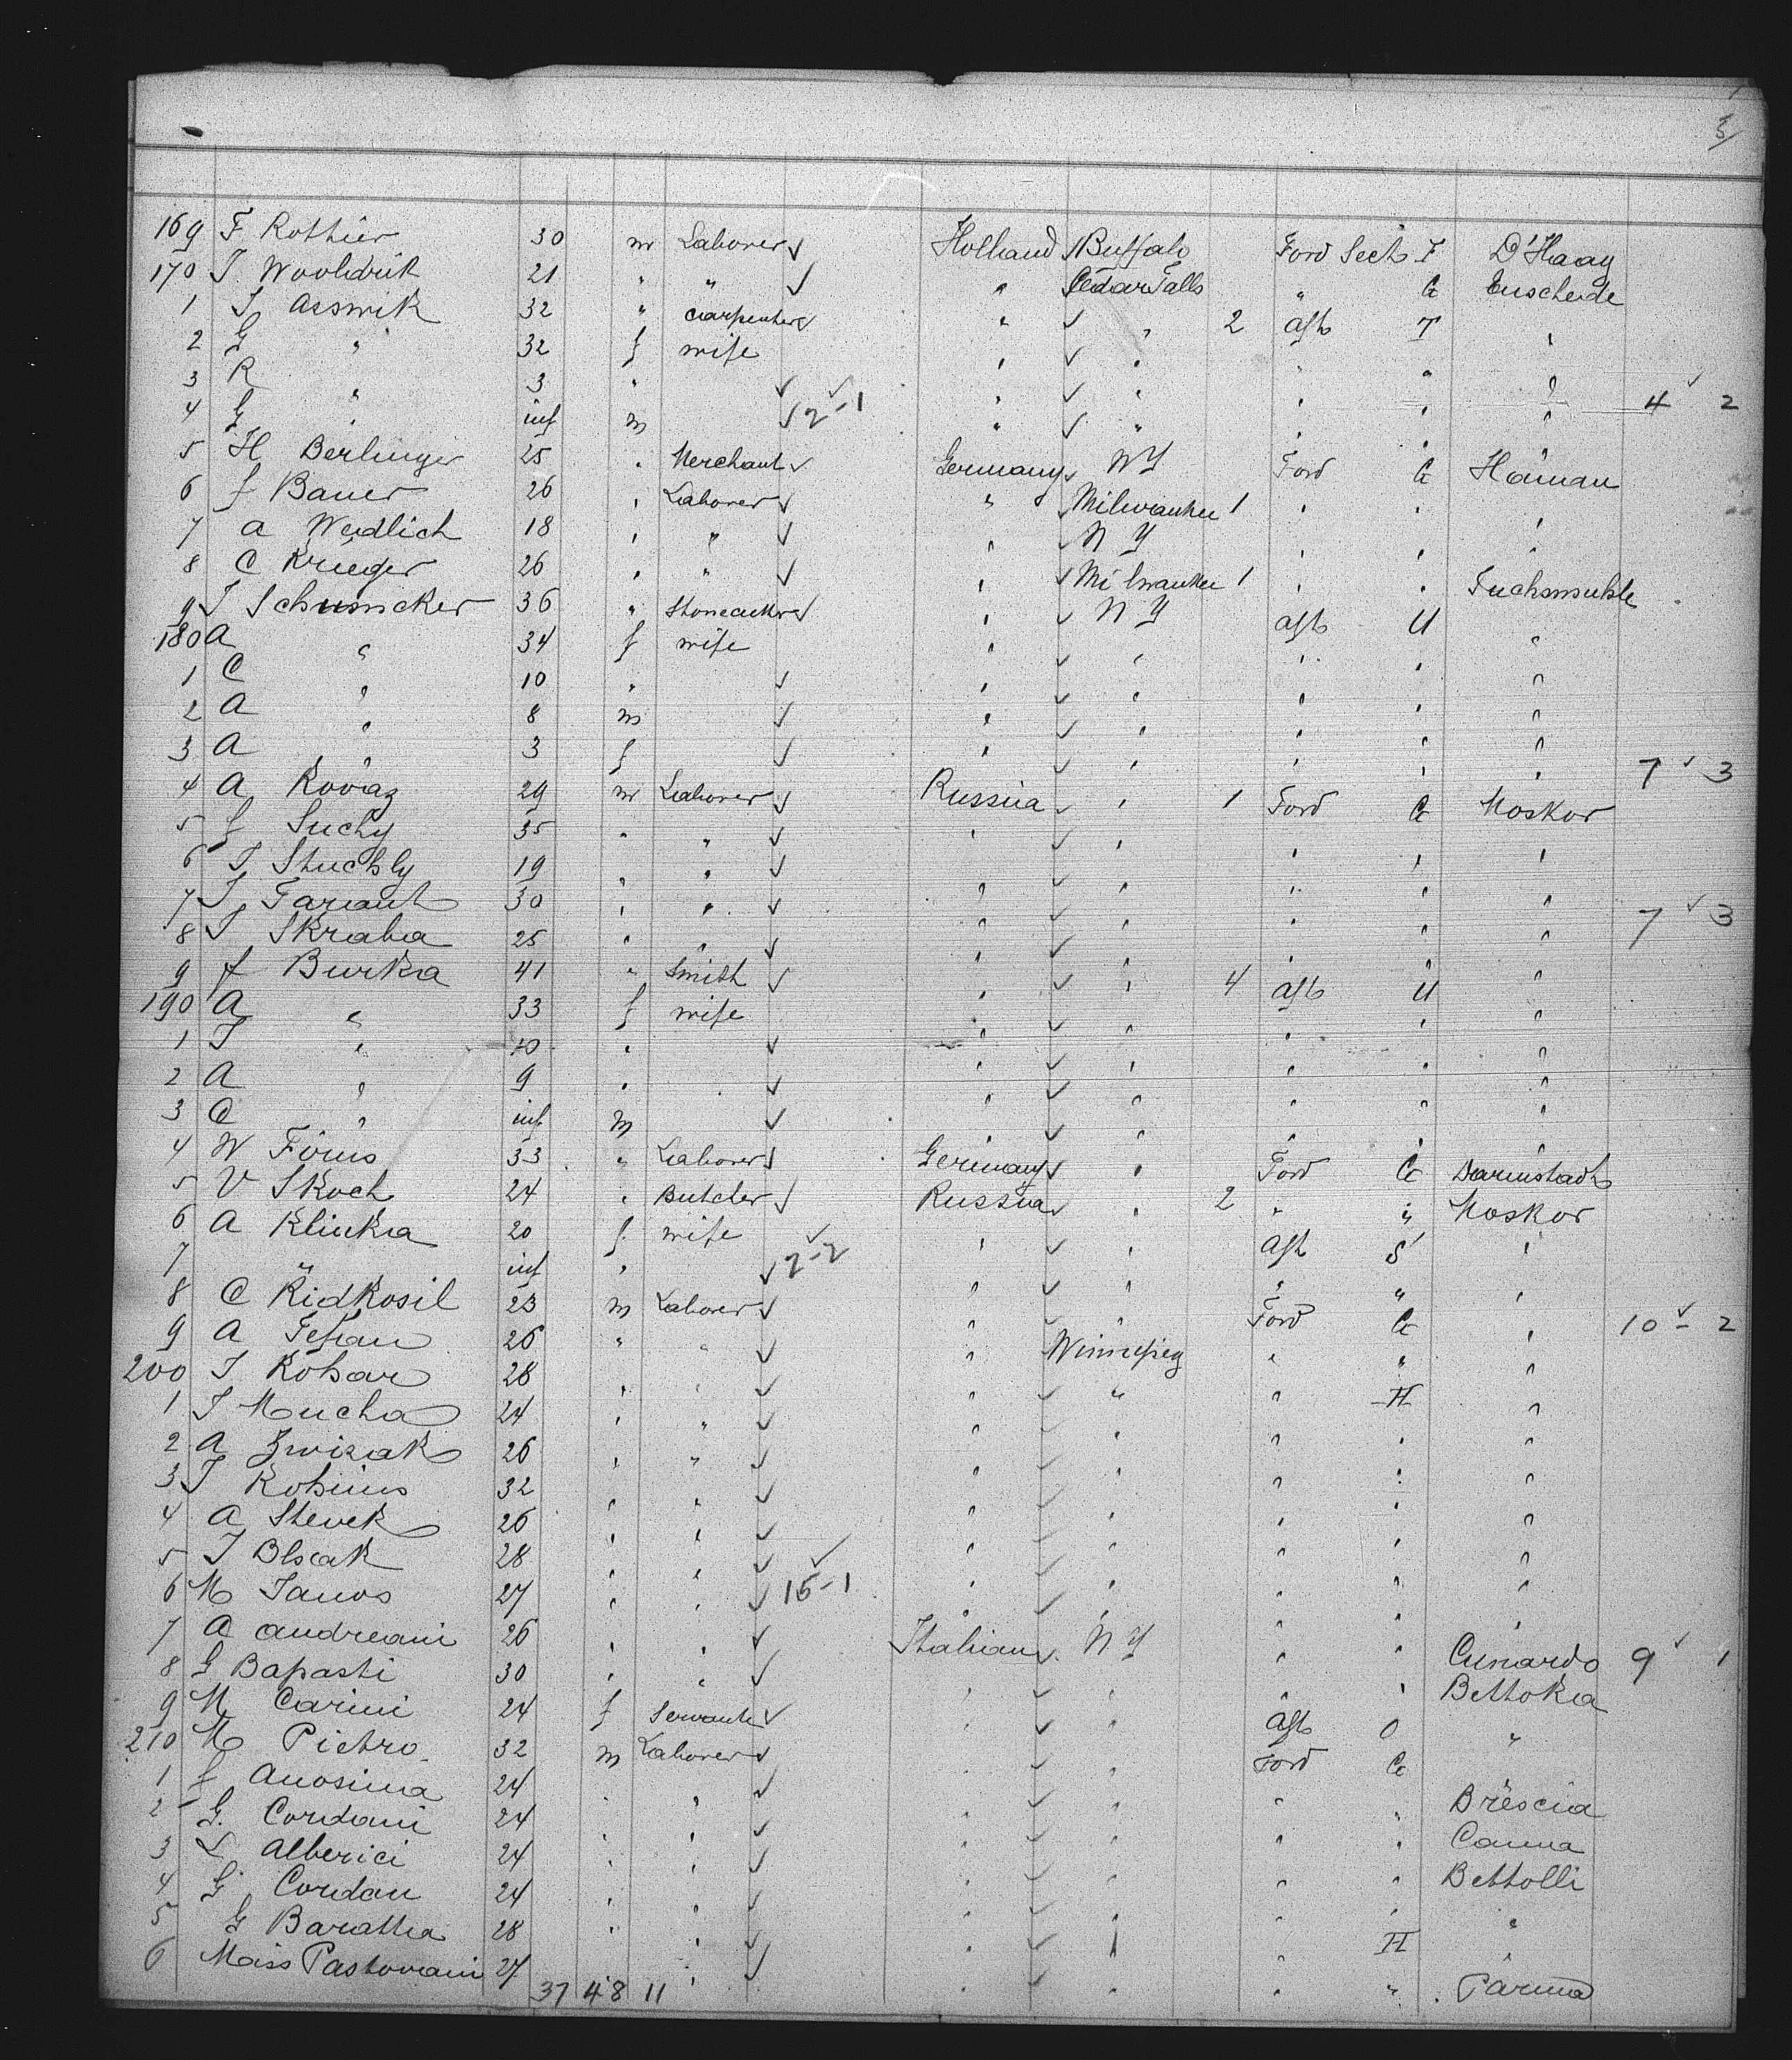 5
169 F Rothier 30 m Laborer Holland Buffalo Ford Sect. F D'Haag
170 J. Wooldrik 21 " " " Cedar Falls " G Enschede
1 J Assmik 32 " Carpenter " " 2 Aft T "
2 G " 32 f wife " " " " "
3 R " 3 " " " " " "
4 G " inf m 2-1 " " " " " 4 2
5 H Berlinger 25 " Merchant Germany N Y Ford G Hainau
6 f Bauer 26 " Laborer " Milwaukee 1 " " "
7 a Weidlich 18 " " " N Y " " "
8 C Krieger 26 " " " Milwaukee 1 " " Fuchsmuhle
9 J Schumcker 36 " Stonecutter " N Y Aft U "
180 A " 34 f wife " " " " "
1 C " 10 " " " " " "
2 A " 8 m " " " " "
3 A " 3 f " " " " " 7 3
4 A Kovaz 29 m Laborer Russia " 1 Ford G Moskov
5 f Suchy 35 " " " " " " "
6 J Stuchly 19 " " " " " " "
7 J Tarant 30 " " " " " " " 7 3
8 J Skraba 25 " " " " " " "
9 f Burka 41 " Smith " " 4 Aft U "
190 A " 33 f wife " " " " "
1 J " 10 " " " " " "
2 A " 9 " " " " " "
3 C " inf m " " " " "
4 W Förns 33 " Laborer Germany " Ford G Darmstadt
5 V Skoch 24 " Butcher Russia " 2 " " Moskov
6 A Klinka 20 f wife " " Aft S "
7 " inf " 2-2 " " " " "
8 C Ridkosil 23 m Laborer " " Ford G " 10 - 2
9 A Tepan 26 " " " Winnipeg " " "
200 J Kohar 28 " " " " " H "
1 J Mucha 24 " " " " " " "
2 A Zwizak 26 " " " " " " "
3 J Kohinis 32 " " " " " " "
4 A Stevek 26 " " " " " " "
5 J Blscak 28 " " " " " " "
6 M Janos 27 " " 15-1 " " " " "
7 A Andreani 26 " " Italian N Y " " Cunardo 9 1
8 G Bapasti 30 " " " " " " Bettoka
9 M Carini 24 f Servant " " Aft O "
210 M Pietro 32 m Laborer " " Ford G
1 f Anosima 24 " " " " " " Brescia
2 G. Cordani 24 " " " " " " Canna
3 L Alberici 24 " " " " " " Bettolli
4 G Cordan 24 " " " " " " "
5 G Baratta 28 " " " " " H "
6 Mass Pastovani 27 " " " " " " Parma
37 48 11